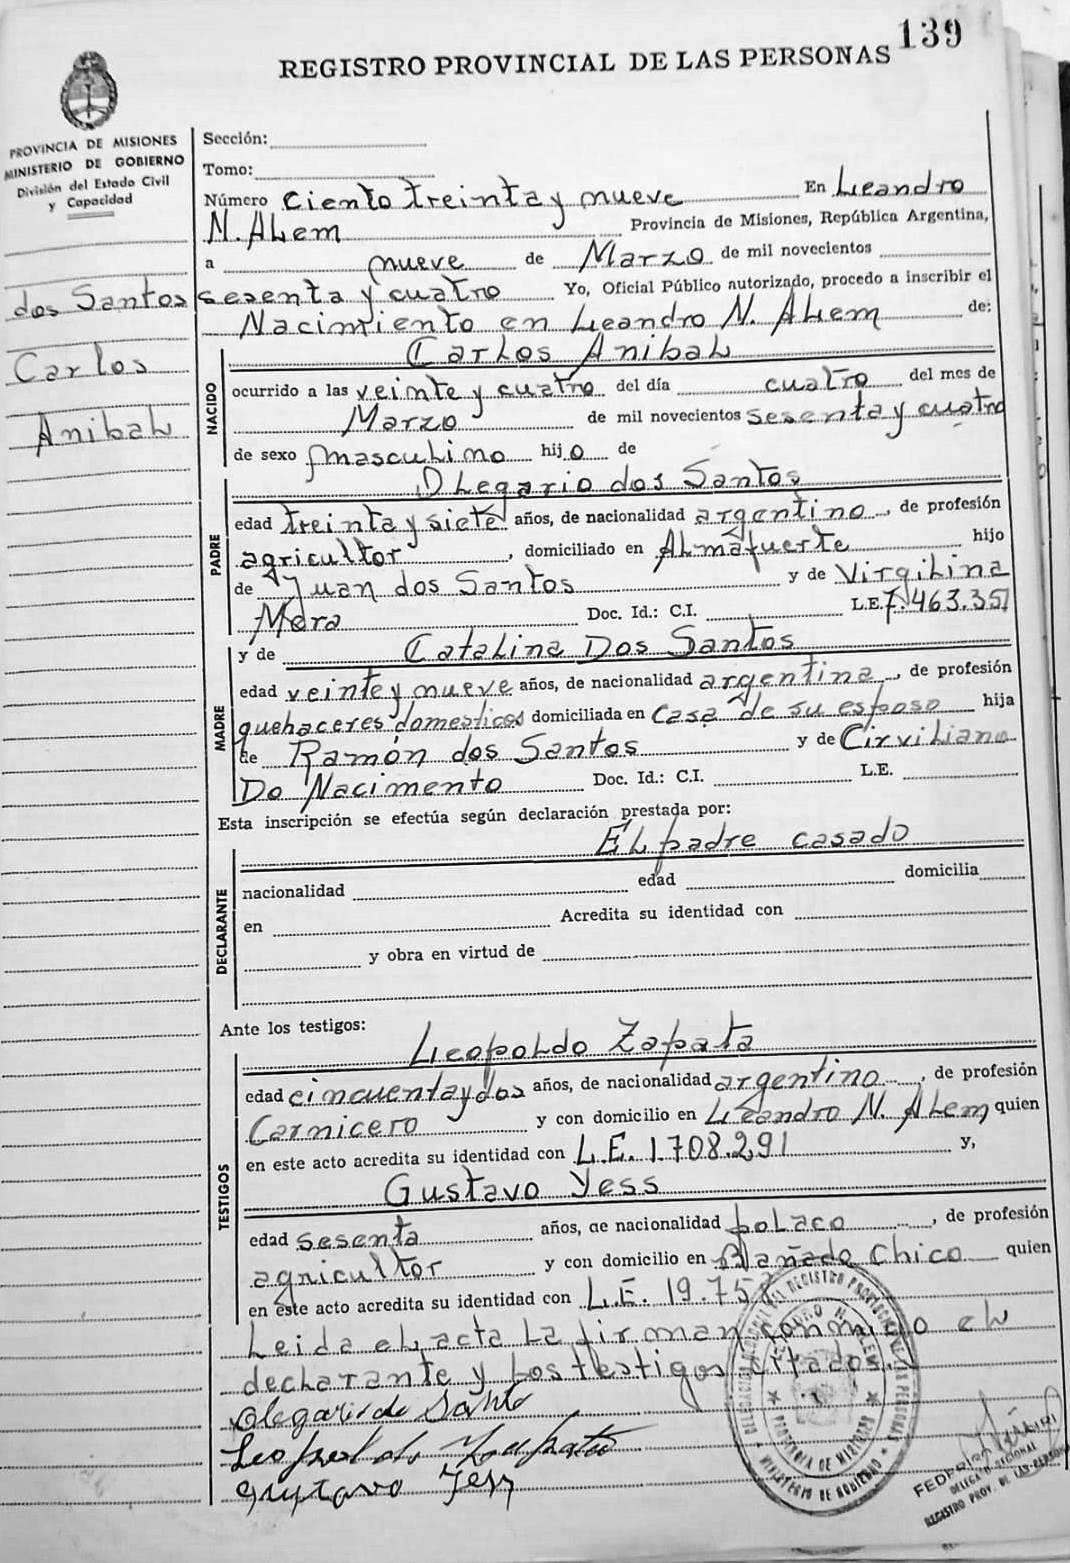 139
REGISTRO PROVINCIAL DE LAS PERSONAS
PROVINCIA DE MISIONES
MINISTERIO DE GOBIERNO
División del Estado Civil
y Capacidad
dos Santos
Carlos
Anibal
Sección:
Tomo:
Número ciento treinta y nueve En Leandro
N. Alem Provincia de Misiones, República Argentina,
a nueve de Marzo de mil novecientos
sesenta y cuatro Yo, Oficial Público autorizado, procedo a inscribir el
Nacimiento en Leandro N. Alem de:
NACIDO
Carlos Anibal
ocurrido a las veinte y cuatro del día cuatro del mes de
Marzo de mil novecientos sesenta y cuatro
de sexo masculino hijo de
PADRE
Olegario dos Santos
edad treinta y siete años, de nacionalidad argentino, de profesión
agricultor, domiciliado en Almafuerte hijo
de Juan dos Santos y de Virgilina
Mora Doc. Id.: C.I. L.E. 7.463.351
MADRE
y de Catalina Dos Santos
edad veinte y nueve años, de nacionalidad argentina, de profesión
quehaceres domesticos domiciliada en casa de su esposo hija
de Ramón dos Santos y de Cirviliana
Do Nacimento Doc. Id.: C.I. L.E.
Esta inscripción se efectúa según declaración prestada por:
DECLARANTE
El padre casado
nacionalidad edad domicilia
en Acredita su identidad con
y obra en virtud de
Ante los testigos:
TESTIGOS
Leopoldo Zapata
edad cincuenta y dos años, de nacionalidad argentino, de profesión
Carnicero y con domicilio en Leandro N. Alem quien
en este acto acredita su identidad con L.E. 1.708.291 y,
Gustavo Yess
edad sesenta años, de nacionalidad polaco, de profesión
agricultor y con domicilio en Bañado Chico quien
en este acto acredita su identidad con L.E. 19.758
Leida el acta la firman conmigo el
declarante y los testigos citados.
Olegario do Santo
Leopoldo Zapata
Gustavo Jess
LEANDRO N. ALEM
PROVINCIA DE MISIONES
MINISTERIO DE GOBIERNO
REGISTRO PROV. DE LAS PERSONAS